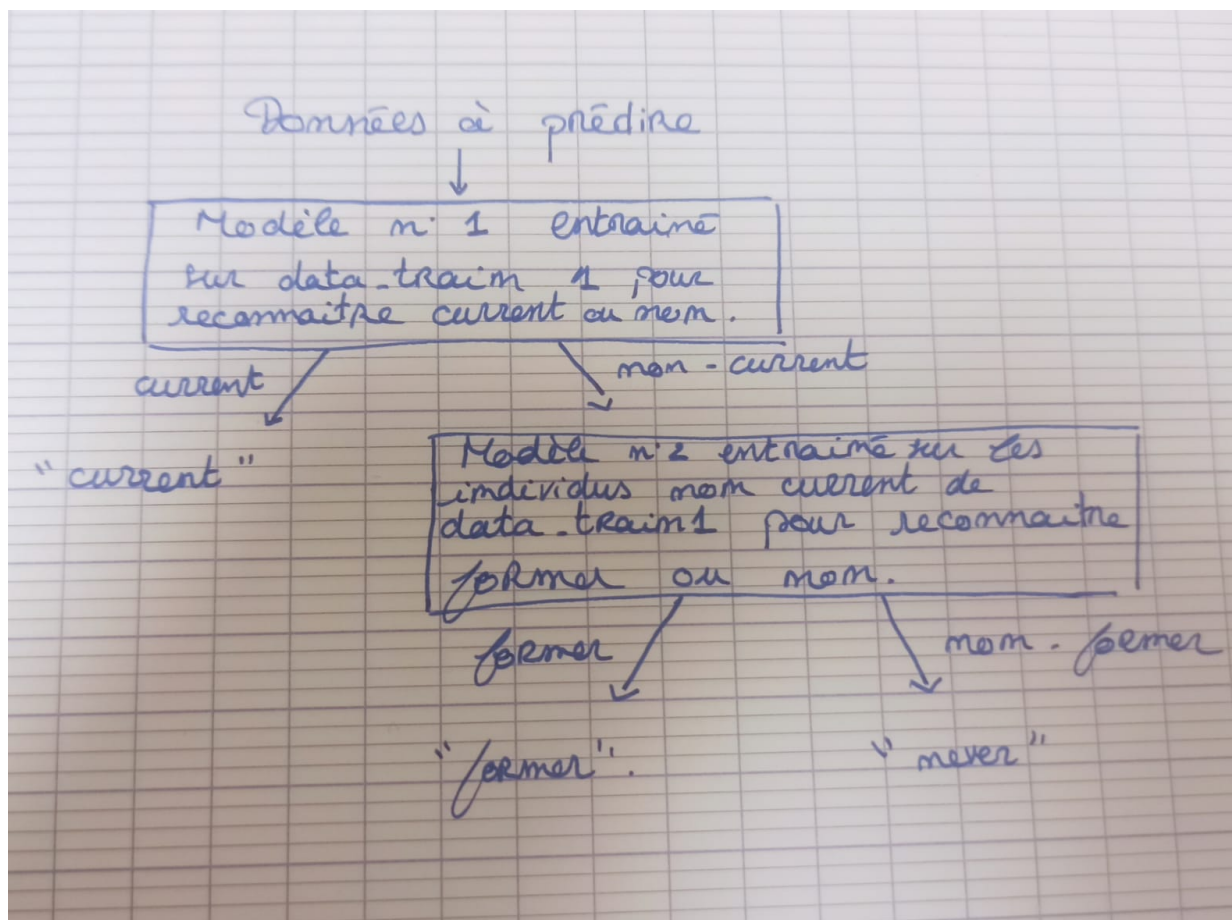 Données à prédire
Modèle n° 1 entrainé
sur data_train 1 pour
reconnaitre current ou non.
current
non-current
"current"
Modèle n°2 entrainé sur les
individus non current de
data_train1 pour reconnaitre
former ou non.
former
non-former
"former".
"never"